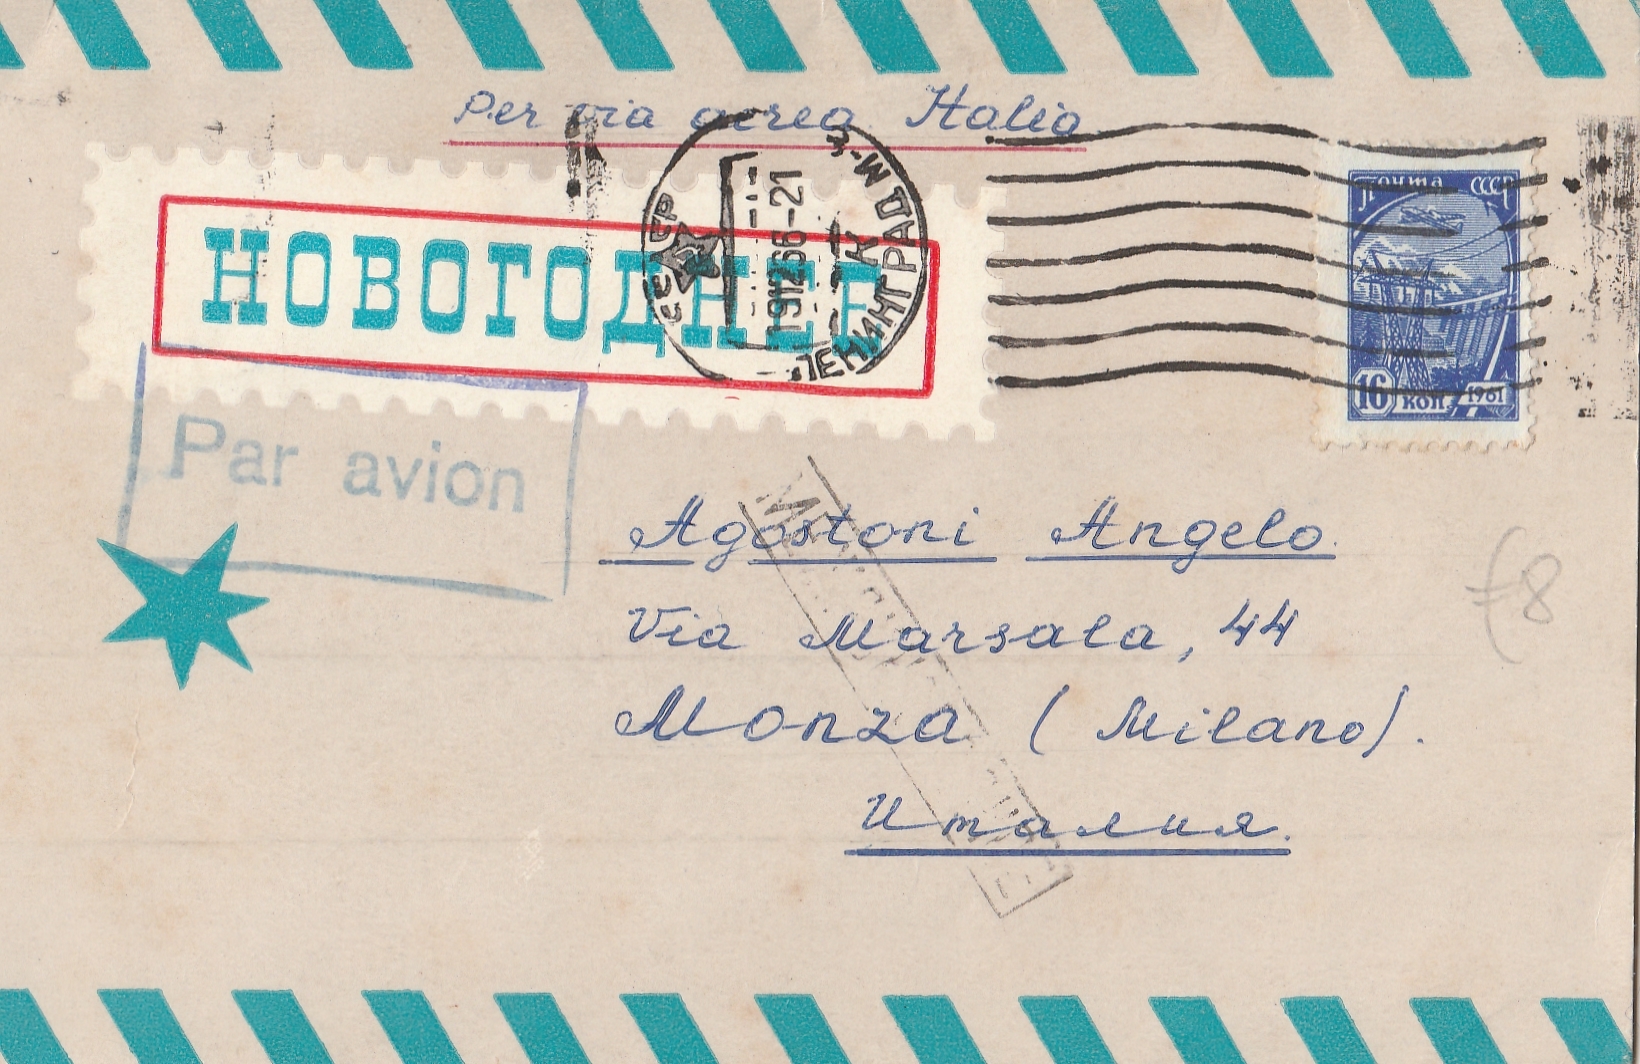 Per via aerea Italia
НОВОГОДНЕЕ
СССР
191266-21
ЛЕНИНГРАД М-3
Почта СССР
16 коп. 1961
Par avion
Agostoni Angelo.
Via Marsala, 44
Monza (Milano).
Италия.
£8